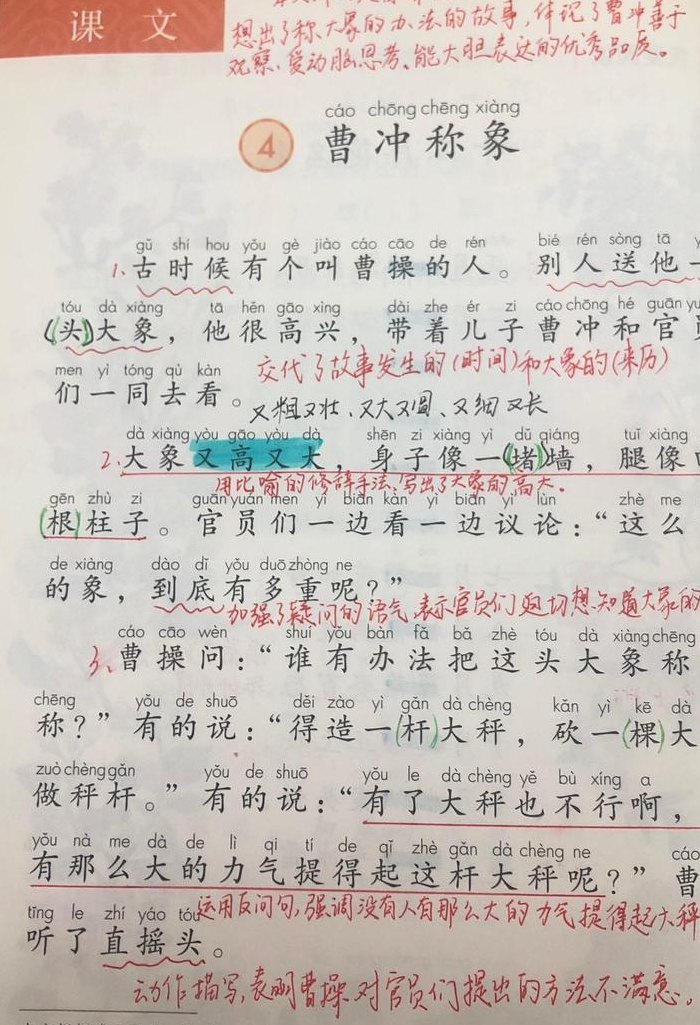 课 文
想出了称大象的办法的故事,体现了曹冲善于
观察、爱动脑思考、能大胆表达的优秀品质。
cáo chōng chēng xiàng
4 曹 冲 称 象
gǔ shí hou yǒu gè jiào cáo cāo de rén bié rén sòng tā
1.古时候有个叫曹操的人。别人送他一
tóu dà xiàng tā hěn gāo xìng dài zhe ér zi cáo chōng hé guān yu
(头)大象,他很高兴,带着儿子曹冲和官员
men yì tóng qù kàn
们一同去看。
交代了故事发生的(时间)和大象的(来历)
又粗又壮、又大又圆、又细又长
dà xiàng yòu gāo yòu dà shēn zi xiàng yì dǔ qiáng tuǐ xiàng
2.大象又高又大,身子像一(堵)墙,腿像
用比喻的修辞手法,写出了大象的高大。
gēn zhù zi guān yuán men yì biān kàn yì biān yì lùn zhè me
(根)柱子。官员们一边看一边议论:“这么
de xiàng dào dǐ yǒu duō zhòng ne
的象,到底有多重呢?”
加强了疑问的语气,表示官员们迫切想知道大象的
cáo cāo wèn shuí yǒu bàn fǎ bǎ zhè tóu dà xiàng chēng
3、曹操问:“谁有办法把这头大象称
chēng yǒu de shuō děi zào yì gǎn dà chèng kǎn yì kē dà
称?”有的说:“得造一(杆)大秤,砍一(棵)大
zuò chèng gǎn yǒu de shuō yǒu le dà chèng yě bù xíng a
做秤杆。”有的说:“有了大秤也不行啊,
yǒu nà me dà de lì qi tí de qǐ zhè gǎn dà chèng ne cáo
有那么大的力气提得起这杆大秤呢?”曹
tīng le zhí yáo tóu
运用反问句,强调没有人有那么大的力气提得起大秤
听了直摇头。
动作描写,表明曹操对官员们提出的方法不满意。